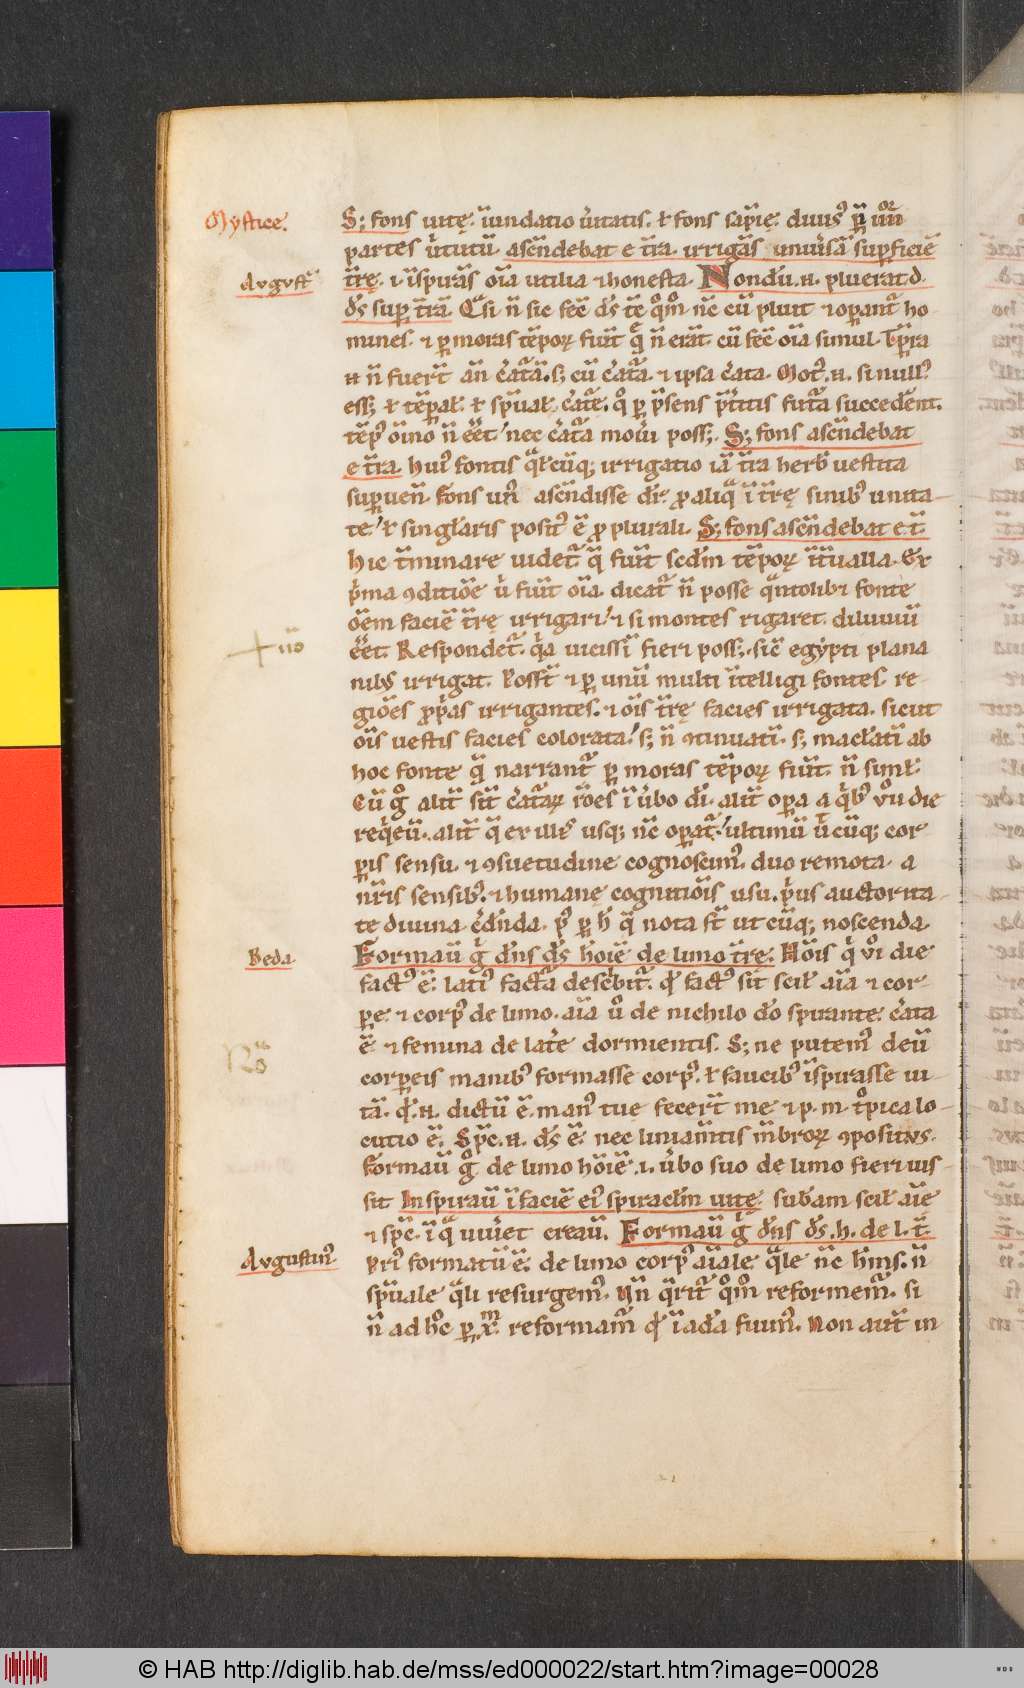 Mystice.
S; fons uitę. ūundatio ũitatis. ł fons sapīę. diuis' p̄ iiiior
partes ũtutū. ascēndebat e tr̄a. irrigās uniũsā sup̱ficiē
Augusti
tr̄ę. i. īspirās oīa utilia ⁊ honesta. Nondū .n. pluerat d
dn̄s sup̱ tr̄ā. Q̄si n̄ sic fec̄ ds̄ tc̄ qm̄ nc̄ cū pluit ⁊ op̱ant̃ ho
mines. ⁊ p̱ moras tēpoꝝ fuūt q̄ n̄ erāt. cū fec̄ oīa simul. Tp̄ra
.n. n̄ fuer̄t an̄ c̃atā. s; cū c̃ata. ⁊ ipsa c̃ata. Mot'.n. si null'
ess; ł tēp̱al'. ł sp̄ual' c̃atę. q° p̱ p̄sens p̄titis futa succedēnt.
tēp' oīno n̄ eēt. nec c̃ata mouīi poss;. S; fons ascēndebat
e tr̄a. hui' fontis q̄lcūq; irrigatio iā tr̄a herb' uestita
sup̱uen̄. Fons un' ascēndisse dr̄. p̱ aliq̄ ī tr̄ę sinib' unita-
te. ł singl'aris posit' ē p̱ plurali. S; fons ascēndebat e t̄.
hic t̄minare uidet̃ q̄ fuūt scd̄m tēpoꝝ īt̄ualla. Ex
p̄ma ꝯditiōe ũ fuūt oīa. dicat̃ n̄ posse q̄ntolibꝫ fonte
ōem faciē tr̄ę irrigari. ⁊ si montes rigaret. diluuiū
+ iīo
eēt. Respondet̃. q̄a uicissī fieri poss;. sic̄ egypti plana
nilus irrigat. Posst̄ ⁊ p̱ unū multi ītelligi fontes re
giōes p̱p̄as irrigantes. ⁊ oīs tr̄ę facies irrigata. sicut
oīs uestis facies colorata. s; n̄ ꝯtinuatī. s; macl'atī ab
hoc fonte q̄ narrant̃ p̱ moras tēpoꝝ fiūt. n̄ siml'.
Cū g° alit̄ sit̄ c̃ataꝝ rōes ī ũbo dī. alit̄ op̱a a q̄b' vii° die
req̄eū. alit̄ q̄ ex ill' usq; nc̄ op̱at̃. ultimū ũ cūq; cor
p̱is sensu. ⁊ ꝯsuetudine cognoscim'. duo remota a
nr̄is sensib'. ⁊ humanę cognitiōis usu. p̄us auctorita-
te diuina c̃dn̄da. p' p̱ h̄ q̄ nota st̄ ut cūq; noscenda.
Beda.
Formauī g° dn̄s ds̄ hōiē de limo tr̄ę. Hōis q̄ vi° die
fact' ē. lati' facta desc̃bit̃. qd' fact' sit scil' aīa ⁊ cor
p̱e. ⁊ corp' de limo. aīa ũ de nichilo do spirante c̃ata
N°a
ē. ⁊ femina de latẽ dormientis. S; ne putem' deū
corp̱eis manib' formasse corp'. ł faucib' īspirasse ui-
tā. qd'.n. dictū ē. man' tue fecer̄t me ⁊ p. m t°pica lo-
cutio ē. Sp̄c.n. ds̄ ē. nec liniam̄tis m̄broꝝ ꝯpositus.
Formauī g° de limo hōiē .i. ũbo suo de limo fieri uis
sit Inspirauī ī faciē ei' spiraclm̄ uitę. subām scil' aīe
⁊ sp̄c. ī q̄ uiũet creauī. Formauī g° dn̄s ds̄.h. de l. t̄.
Augustin'
P̄i' formatū ē. de limo corp' aīale q̄le nc̄ hm̄s. n̄
sp̄uale q̄li resurgem'. Un̄ q̄rit̃ qm° reformem̃. si
n̄ ad hoc p̱ xm̄ reformam̃ qd' ī ada fuim'. Non aut̄ in
© HAB http://diglib.hab.de/mss/ed000022/start.htm?image=00028